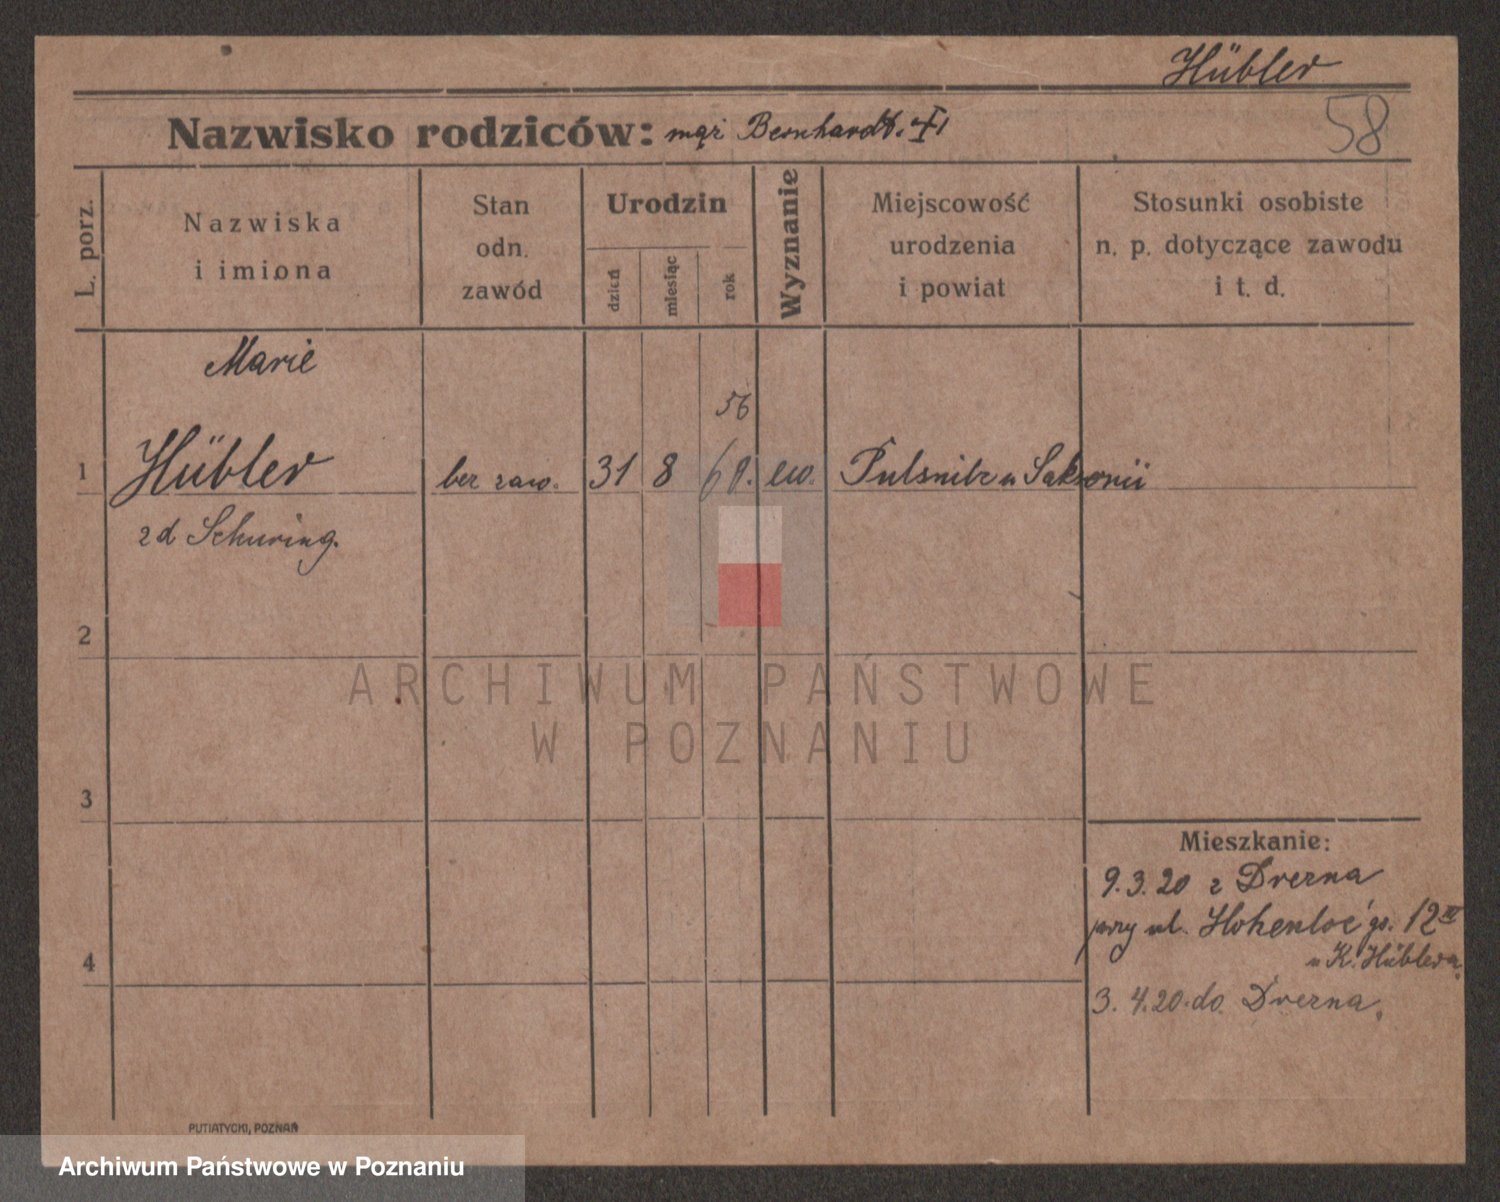 Hübler
58
Nazwisko rodziców: mąż Bernhardt. †
L. porz.
Nazwiska
i imiona
Stan
odn.
zawód
Urodzin
dzień
miesiąc
rok
Wyznanie
Miejscowość
urodzenia
i powiat
Stosunki osobiste
n. p. dotyczące zawodu
i t. d.
Marie
56
1 Hübler bez zaw. 31 8 60. ew. Pulsnitz w Saksonii
zd Schuring.
2
3
4
Mieszkanie:
9.3.20 z Drezna
przy ul. Hohenloe'go. 12 IV
u K. Hüblera.
3. 4.20. do Drezna.
PUTIATYCKI, POZNAŃ
ARCHIWUM PAŃSTWOWE
W POZNANIU
Archiwum Państwowe w Poznaniu